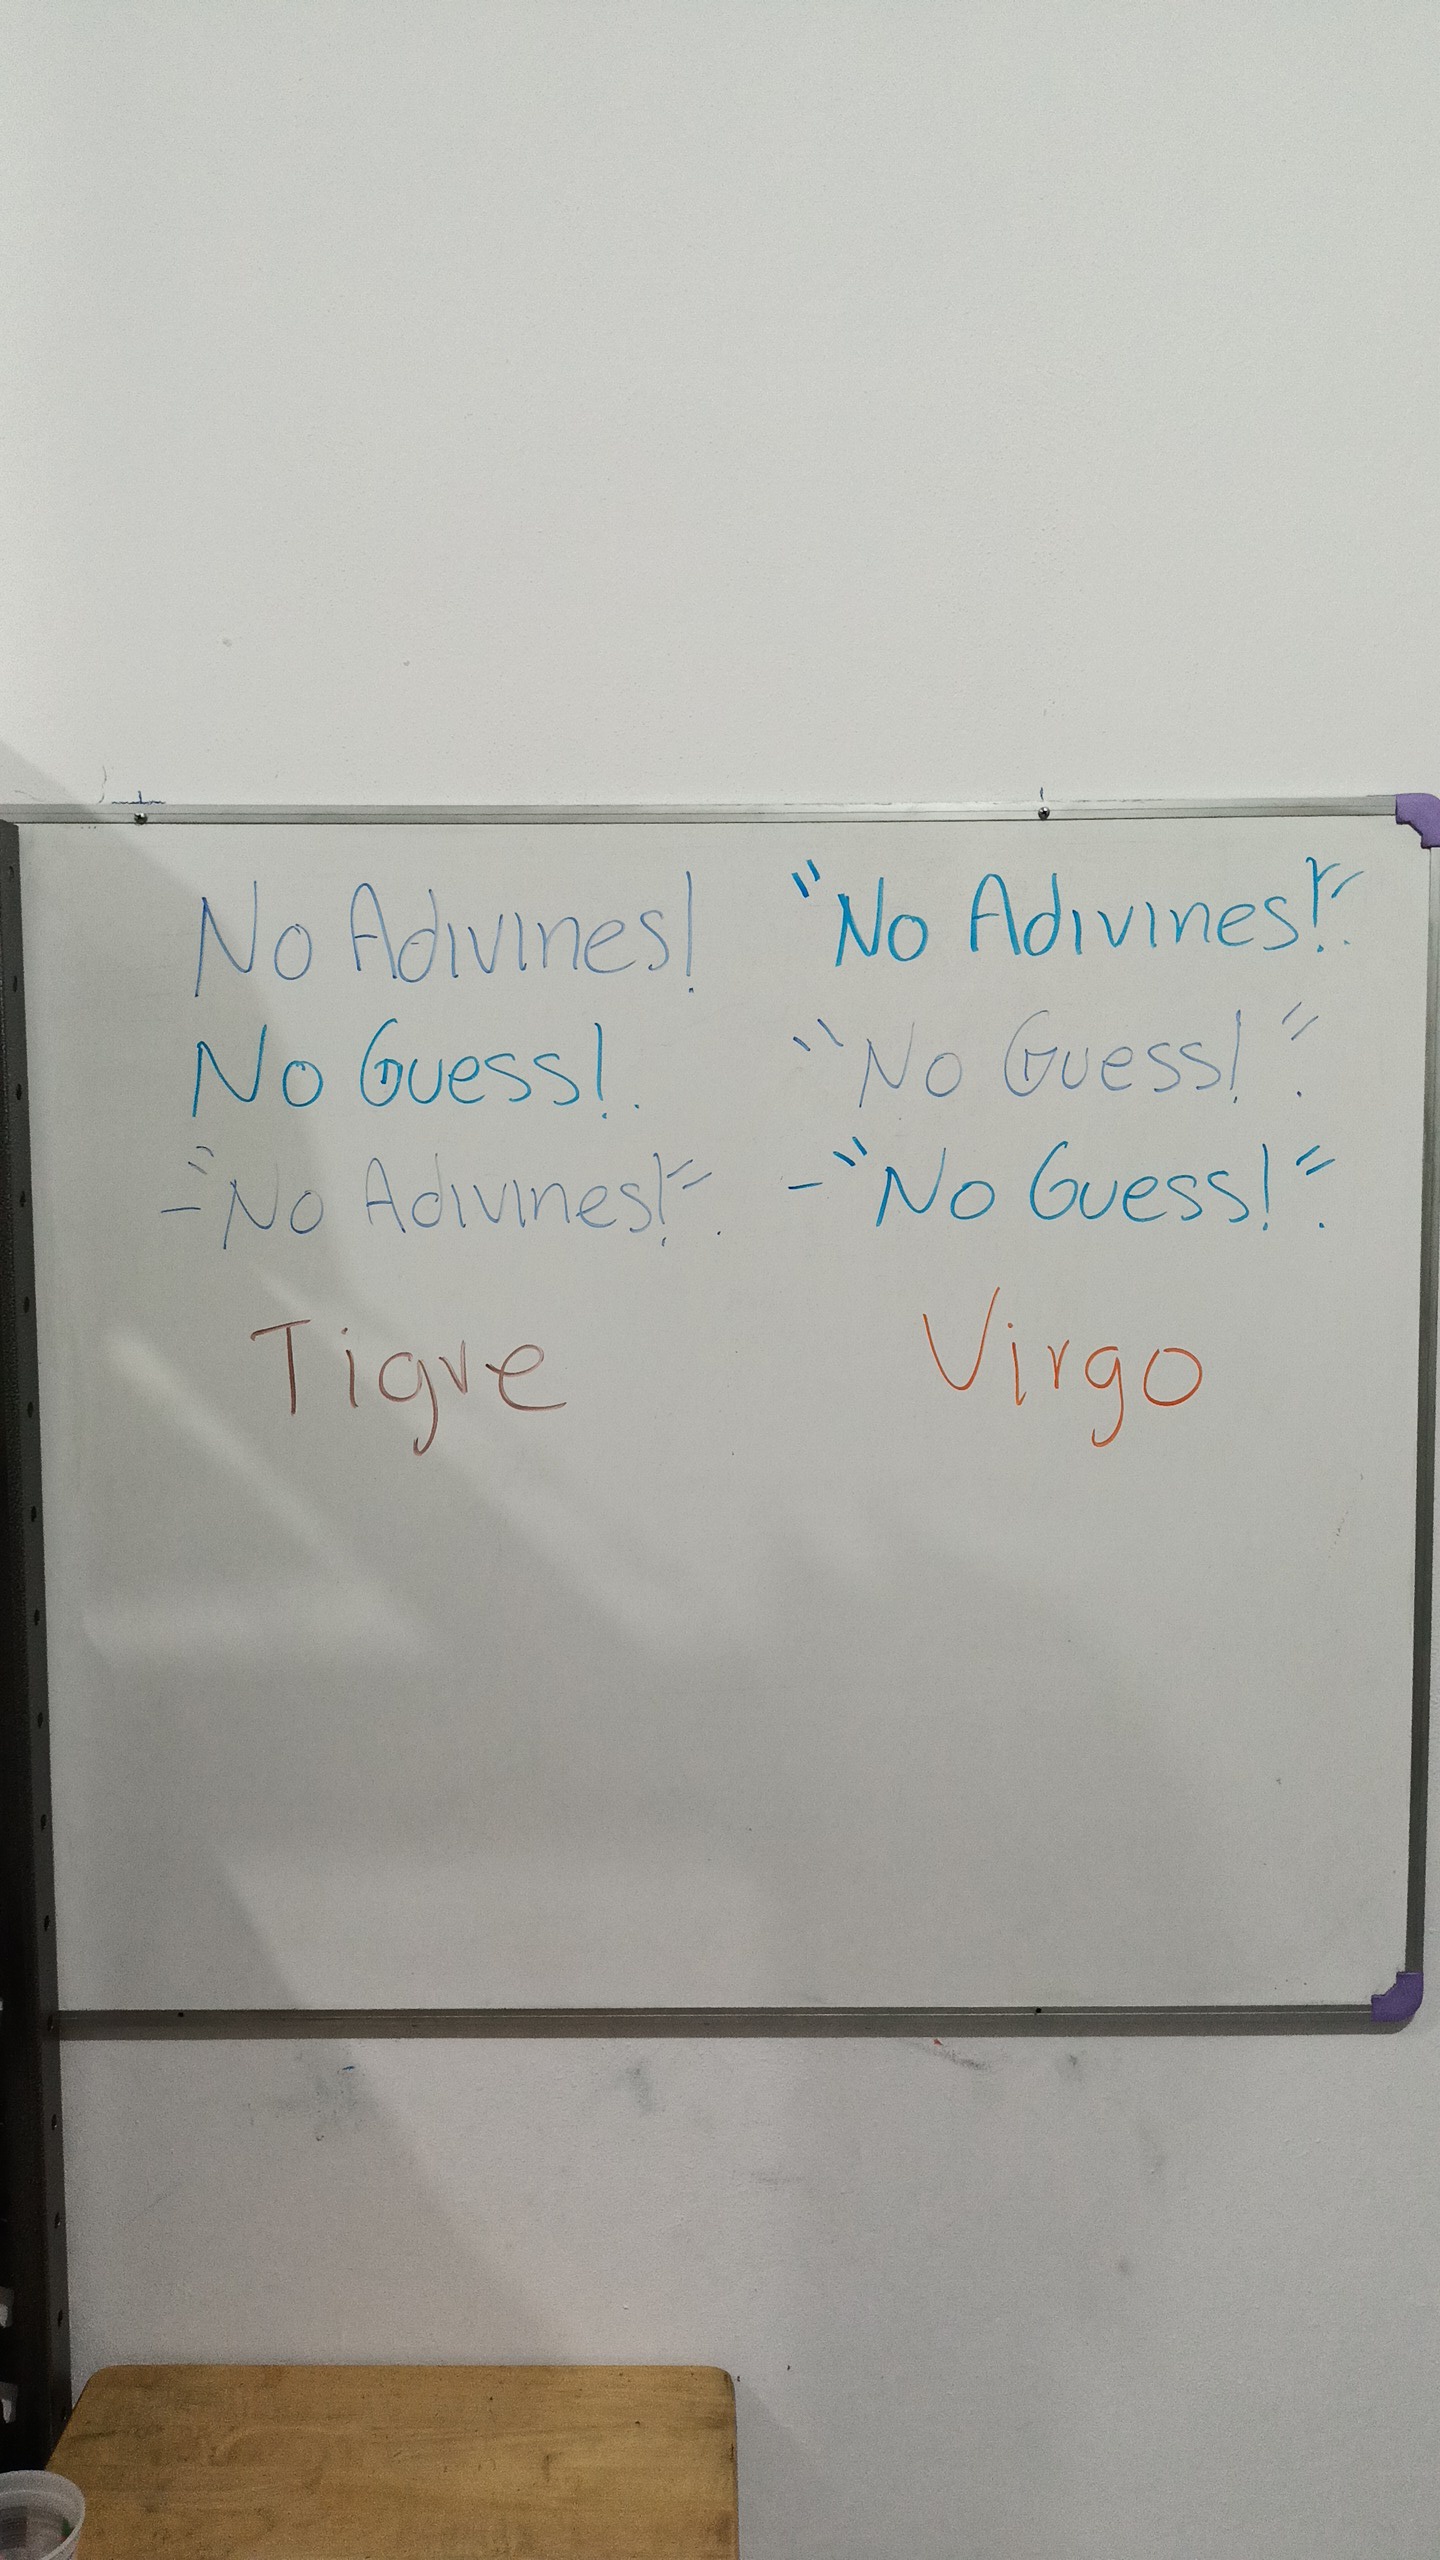 No Adivines!
No Guess!.
-"No Adivines!".
Tigre
"No Adivines!".
"No Guess!".
-"No Guess!".
Virgo